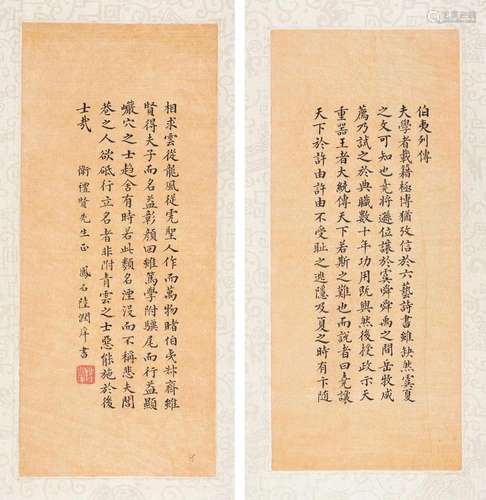 伯夷列傳
夫學者載籍極博猶攷信於六藝詩書雖缺然虞夏
之文可知也堯將遜位讓於虞舜舜禹之間岳牧咸
薦乃試之於典職數十年功用既興然後授政示天
重器王者大統傳天下若斯之難也而說者曰堯讓
天下於許由許由不受恥之逃隱及夏之時有卞隨
相求雲從龍風從虎聖人作而萬物睹伯夷叔齊雖
賢得夫子而名益彰顏回雖篤學附驥尾而行益顯
巖穴之士趨舍有時若此類名湮沒而不稱悲夫閭
巷之人欲砥行立名者非附青雲之士惡能施於後
士哉
衛禮賢先生正 鳳石陸潤庠書